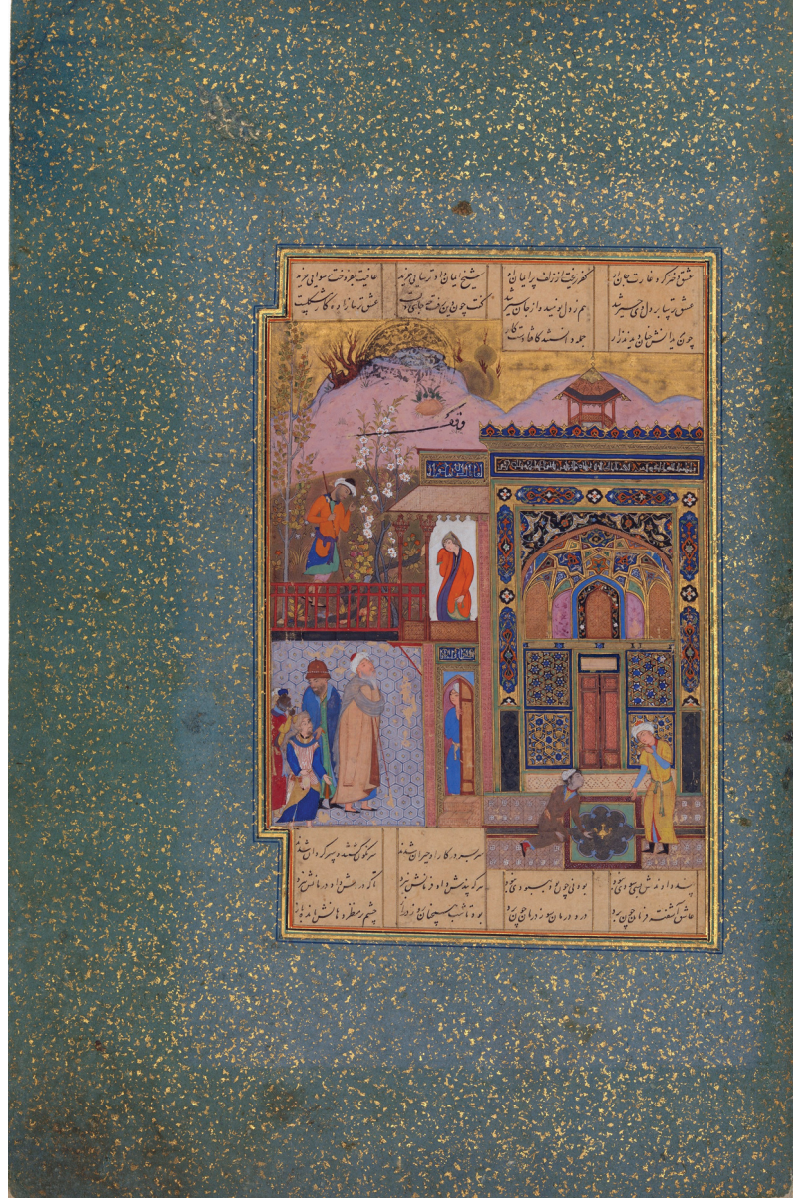 عشق دختر کرد غارت جان او کفر ریخت از زلف بر ایمان او شیخ ایمان داد ترسایی خرید عافیت بفروخت رسوایی خرید
عشق ترسا بر دل وی چیر شد هم ز دل نومید و از جان سیر شد گفت چون دین رفت جای دل عشق ترسازاده کار مشکلیست
چون مریدانش چنان دیدند زار جمله دانستند کافتادست کار
سر بسر در کار او حیران شدند سرنگون گشتند و سرگردان شدند
پند دادندش بسی سودی نبود بودنی چون بود بهبودی نبود هرکه پندش داد فرمانش نبرد درمانش نبرد
عاشق آشفته فرمان چون برد درد درمان سوز درمان چون برد بود تا شب همچنان روز دراز چشم بر منظر دهانش مانده باز